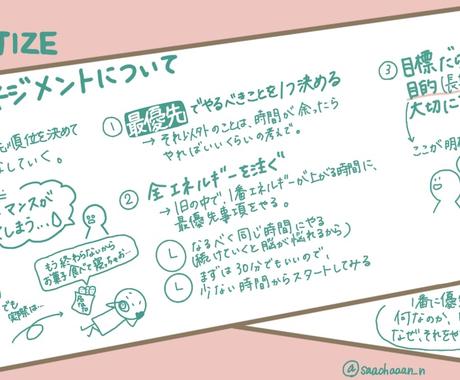 TIZE
ジメントについて
順位を決めて
なしていく。
マンスが
しまう...
でも
実際は...
もう終わらないから
お菓子食べて寝ちゃお...
① 最優先でやるべきことを1つ決める
→ それ以外のことは、時間が余ったら
やればいいくらいの考えで。
② 全エネルギーを注ぐ
→ 1日の中で、1番エネルギーが上がる時間に、
最優先事項をやる。
なるべく同じ時間にやる
(続けていくと脳が慣れるから)
まずは30分でもいいので、
少ない時間からスタートしてみる
③ 目標だ
目的(長
大切に
ここが明
1番に優
何なのか、
なぜ、それをや
@saachaaan_n